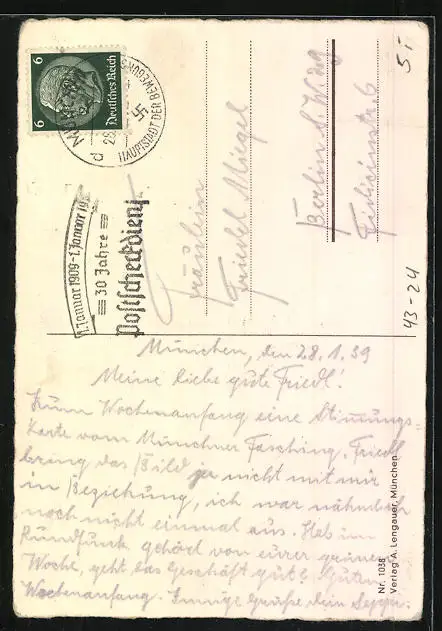 6 6
Deutsches Reich
MÜNCHEN
28.
d
HAUPTSTADT DER BEWEGUNG
1. Januar 1909 - 1. Januar 19
30 Jahre
Postscheckdienst
Fräulein
Friedel Miegel
Berlin S.W. 29
Fidicinstr. 6
5 i
43-24
München, den 28.1.39
Meine liebe gute Friedl!
Zum Wochenanfang eine Stimmungs=
karte vom Münchner Fasching. Friedl
bring das Bild ja nicht mit mir
in Beziehung, ich war nähmlich
noch nicht einmal aus. Hab im
Rundfunk gehört von eurer grünen
Woche, geht das Geschäft gut? Guten
Wochenanfang. Innige Grüsse dein Sepp.
Nr. 1038
Verlag A. Lengauer, München